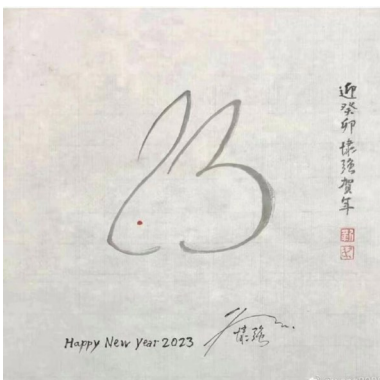 迎癸卯 懐強賀年
Happy New Year 2023
懐強